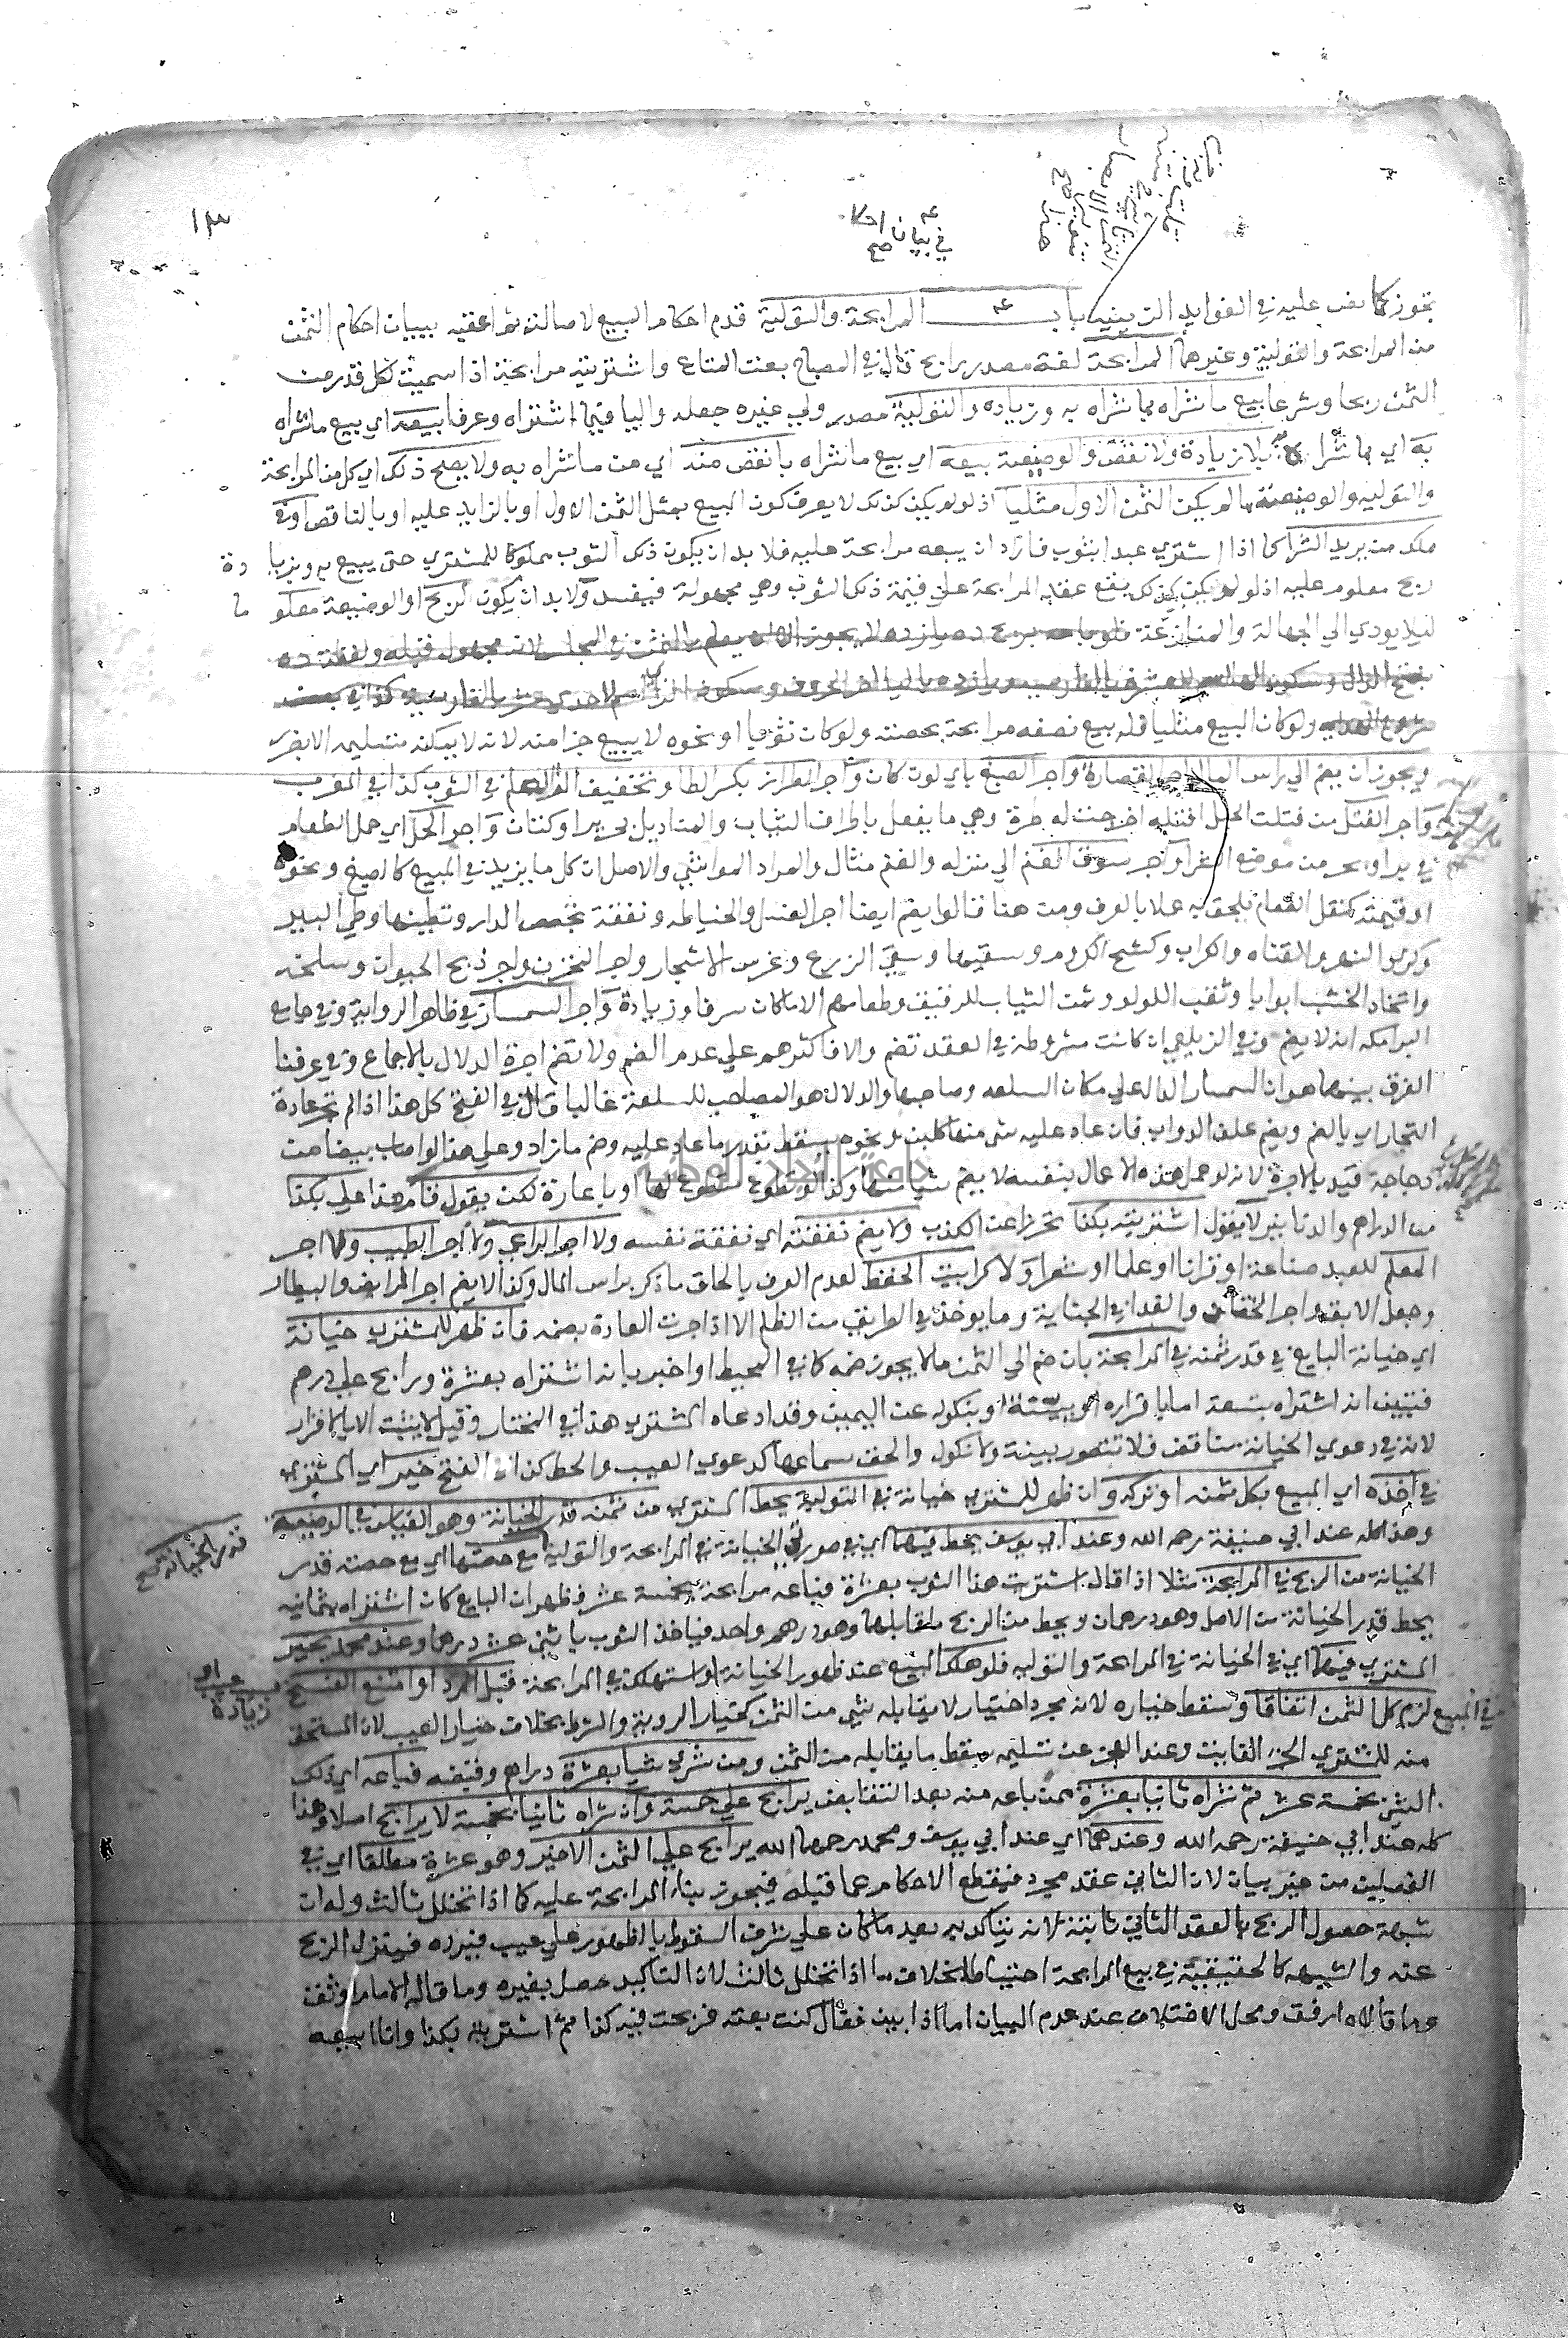 ١٣
في بيان احكا
صح
تجوز كما نص عليه في الفوايد الزينية باب المرابحة والتولية قدم احكام البيع لاصالته ثم اعقبه ببيان احكام الثمن
من المرابحة والتولية وغيرهما المرابحة لغة مصدر رابح قال في المصباح بعت المتاع واشتريته مرابحة اذا سميت لكل قدر من
الثمن ربحا وشرعا بيع ما شراه بما شراه به وزيادة والتولية مصدر ولي غيره جعله واليا فيما اشتراه وعرفا بيعه اي بيع ما شراه
به اي بما شراه به بلا زيادة ولا نقص والوضيعة بيعه اي بيع ما شراه بانقص منه اي من ما شراه به ولا يصح ذلك اي كل من المرابحة
والتولية والوضيعة ما لم يكن الثمن الاول مثليا اذ لو لم يكن كذلك لا يعرف كون المبيع بمثل الثمن الاول او بالزايد عليه او بالناقص او في
ملك من يريد الشرا كما اذا اشترى عبدا بثوب فاراد ان يبيعه مرابحة عليه فلا بد ان يكون ذلك الثوب مملوكا للمشتري حتى يبيع به وبزيادة
ربح معلوم عليه اذ لو لم يكن كذلك يقع عقد المرابحة على قيمة ذلك الثوب وهي مجهولة فيفسد ولا بد ان يكون الربح او الوضيعة معلوما
ليلا يودي الى الجهالة والمنازعة فلو باعه بربح ده يازده لا يجوز الا ان يعلم بالثمن في المجلس لانه مجهول قبله ولفظة ده
بفتح الدال وسكون الهاء اسم لعشرة بالفارسية ويازده بالياء اخر الحروف وسكون الزاي اسم لاحدى عشر بالفارسية كذا في بعض
شروح الهداية ولو كان المبيع مثليا فله بيع نصفه مرابحة بحصته ولو كان ثوبا او نحوه لا يبيع جزا منه لانه لا يمكنه تسليمه الا بضرر
ويجوز ان يضم الى راس المال اجر القصارة واجر الصبغ باي لون كان واجر الطراز بكسر الطا وتخفيف الرا العلم في الثوب كذا في المغرب
واجر الفتل من فتلت الحبل افتله اخرجت له طرة وهي ما يفعل باطراف الثياب والمناديل بحرير او كتان واجر الحمل اي حمل الطعام
في بر او بحر من موضع الشرا واجر سوق الغنم الى منزله والغنم مثال والمراد المواشي والاصل ان كل ما يزيد في المبيع كالصبغ ونحوه
او قيمته كنقل الطعام يلحق به عملا بالعرف ومن هنا قالوا يضم ايضا اجر الغسل والخياطة ونفقة تجصيص الدار وتطيينها وطي البير
وكري النهر والقناه والكراب وكسح الكروم وسقيها وسقي الزرع وغرس الاشجار واجر المخزن واجر ذبح الحيوان وسلخه
واتخاذ الخشب ابوابا وثقب اللولو وثمن الثياب للرقيق وطعامهم الا ما كان سرفا وزيادة واجر السمسار في ظاهر الرواية وفي جامع
البرامكه انه لا يضم وفي الزيلعي ان كانت مشروطة في العقد تضم والا فاكثرهم على عدم الضم ولا تضم اجرة الدلال بالاجماع وفي عرفنا
الفرق بينهما هو ان السمسار الدال على مكان السلعه وصاحبها والدلال هو المصاحب للسلعة غالبا قال في الفتح كل هذا اذا لم تجر عادة
التجار اي بالضم ويضم علف الدواب فان عاد عليه شي منها كلبن ونحوه يسقط بقدر ما عاد عليه وضم ما زاد وعلى هذا لو اصاب بيضا من
دجاجة قيد بالاجرة لانه لو عمل هذه الاعمال بنفسه لا يضم شيا منها وكذا لو تطوع متطوع بها او باعارة لكن يقول قام هذا علي بكذا
من الدراهم والدنانير لا يقول اشتريته بكذا تحرزا عن الكذب ولا يضم نفقته اي نفقة نفسه ولا اجر الراعي ولا اجر الطبيب ولا اجر
المعلم للعبد صناعة او قرانا او علما او شعرا ولا كرا بيت الحفظ لعدم العرف بالحاق ما ذكر براس المال وكذا لا يضم اجر الرايض والبيطار
وجعل الابق واجر الختان والفدا في الجناية وما يوخذ في الطريق من الظلم الا اذا جرت العادة بضمه فان ظهر للمشتري خيانة
اي خيانة البايع في قدر ثمنه في المرابحة بان ضم الى الثمن ما لا يجوز ضمه كما في المحيط او اخبر بانه اشتراه بعشرة ورابح على درهم
فتبين انه اشتراه بتسعة اما باقراره او ببينة او بنكوله عن اليمين وقد ادعاه المشتري هذا في المختار وقيل لا يثبت الا بالاقرار
لانه في دعوى الخيانة مناقض فلا تتصور بينة ولا نكول والحق سماعها كدعوى العيب والحط كذا في الفتح خير اي المشتري
في اخذه اي المبيع بكل ثمنه او تركه وان ظهر للمشتري خيانة في التولية يحط المشتري من ثمنه قدر الخيانة وهو القياس في الوضيعة
قدر الخيانة صح
وهذا كله عند ابي حنيفة رحمه الله وعند ابي يوسف يحط فيهما اي في صورتي الخيانة في المرابحة والتولية مع حصتها اي مع حصته قدر
الخيانة من الربح في المرابحة مثلا اذا قال اشتريت هذا الثوب بعشرة فباعه مرابحة بخمسة عشر فظهر ان البايع كان اشتراه بثمانيه
يحط قدر الخيانة من الاصل وهو درهمان ويحط من الربح ما قابلها وهو درهم واحد فياخذ الثوب باثني عشر درهما وعند محمد يخير
المشتري فيهما اي في الخيانة في المرابحة والتوليه فلو هلك المبيع عند ظهور الخيانة او استهلك في المرابحة قبل الرد او امتنع الفسخ
بعيب او زيادة
في المبيع لزم كل الثمن اتفاقا وسقط خياره لانه مجرد اختيار لا يقابله شي من الثمن كخيار الروية والشرط بخلاف خيار العيب لان المستحق
منه للمشتري الجزء الفايت وعند العجز عن تسليمه يسقط ما يقابله من الثمن ومن شرى شيا بعشرة دراهم وقبضه فباعه اي ذلك
الشي بخمسة عشر ثم شراه ثانيا بعشرة ممن باعه منه بعد التقابض يرابح على خمسة وان شراه ثانيا بخمسة لا يرابح اصلا وهذا
كله عند ابي حنيفة رحمه الله وعندهما اي عند ابي يوسف ومحمد رحمهما الله يرابح على الثمن الاخير وهو عشرة مطلقا اي في
الفصلين من غير بيان لان الثاني عقد مجرد فينقطع الاحكام عما قبله فيجوز بناء المرابحة عليه كما اذا تخلل ثالث وله ان
شبهة حصول الربح بالعقد الثاني ثابتة لانه يتاكد به بعد ما كان على شرف السقوط بالظهور على عيب فيرده فيزول الربح
عنه والشبهه كالحقيقية في بيع المرابحة احتياطا بخلاف ما اذا تخلل ثالث لان التاكيد حصل بغيره وما قاله الامام اوثق
وما قالاه ارفق ومحل الاختلاف عند عدم البيان اما اذا بين فقال كنت بعته فربحت فيه كذا ثم اشتريته بكذا وانا ابيعه